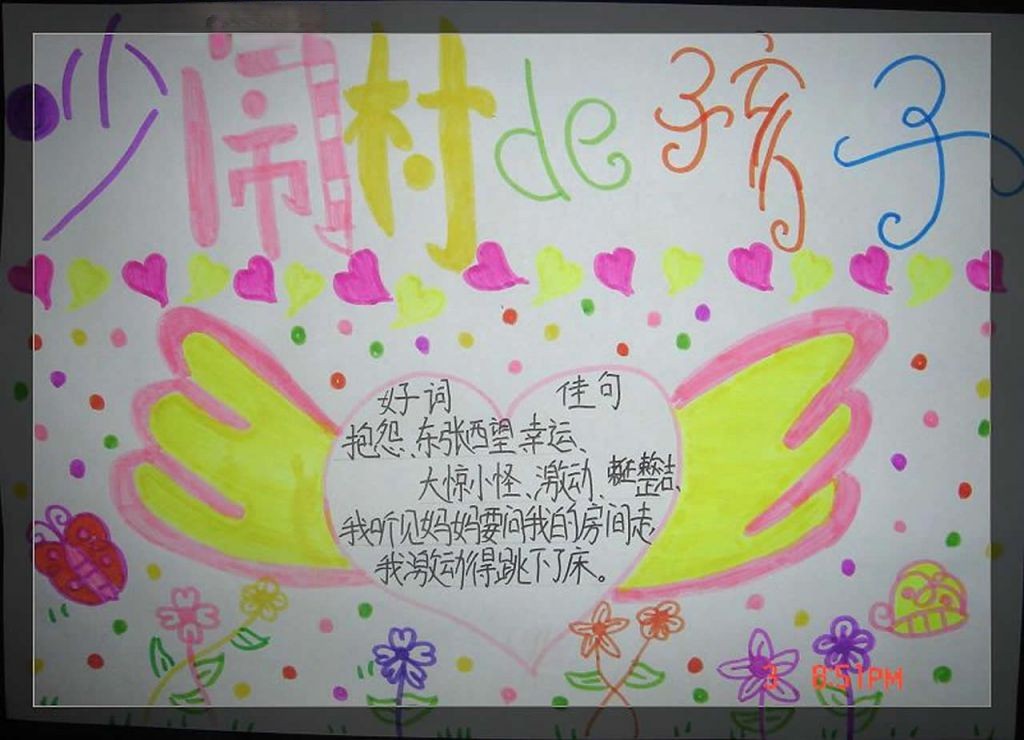 吵闹村de孩子
好词 佳句
抱怨、东张西望、幸运、
大惊小怪、激动、整洁、
我听见妈妈要问我的房间走,
我激动得跳下了床。
3 8:51PM